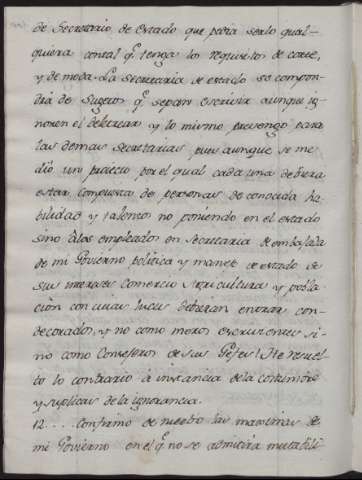 de Secretario de Estado que podia serlo qual-
quiera contal q.e tenga los requisitos de corte,
y de moda. La secretaria de estado se compon-
drá de Sugetos q.e sepan escrivir aunque ig-
noren el deletrear y lo mismo prevengo para
las demas secretarias pues aunque se me
dio un proiecto por el qual cada una deviera
estar compuesta de personas de conocida ha-
bilidad y talento no poniendo en el estado
sino á los empleados en Secretaria de embajada
de mi Govierno politica y manejo de estado de
sus intereses Comercio Agricultura y pobla-
ción con cuias luces deberian entrar con-
decorados, y no como meros escrivientes si-
no como Consejeros de sus Gefes: He resuel-
to lo contrario á instancia de la costumbre
y suplicas de la ignorancia.
12.... Confirmo de nuevo las maximas de
mi Govierno en el q.e no se admitirá mutabili-